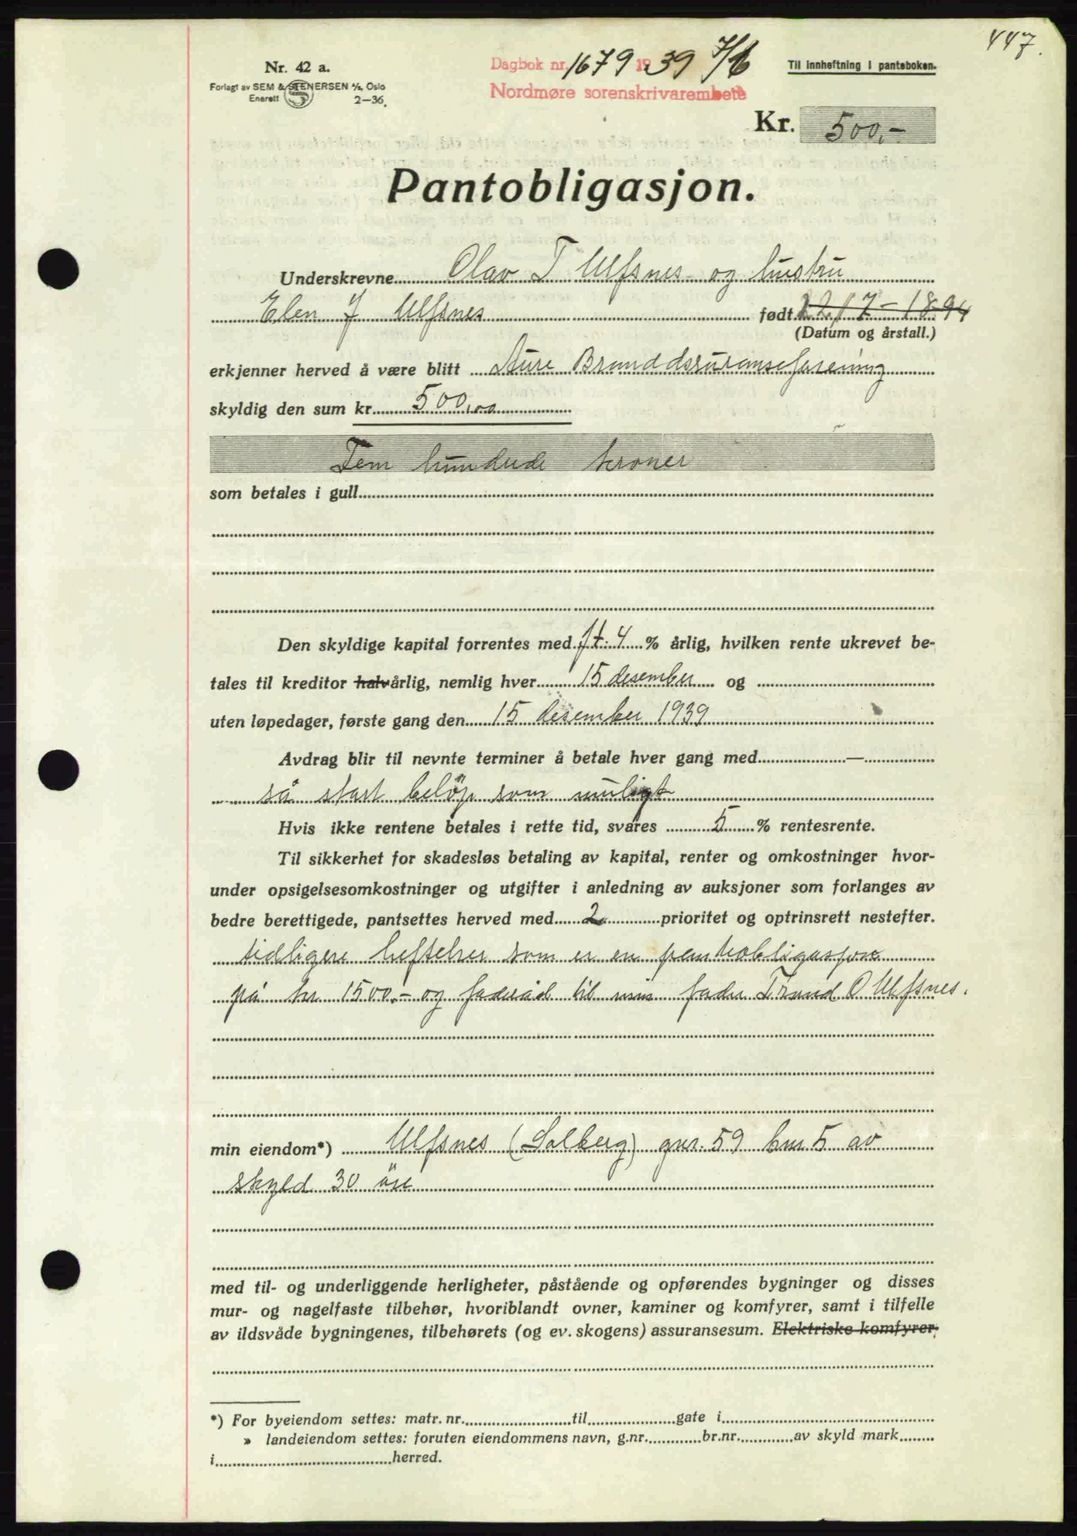 447.
Nr. 42 a.
Forlagt av SEM & STENERSEN A/S, Oslo
Enerett 2—36.
Dagbok nr. 1679 1939 7/6
Nordmøre sorenskriverembete
Til innheftning i panteboken.
Kr. 500,-
Pantobligasjon.
Underskrevne Olav T Ulfsnes og hustru
Elen J Ulfsnes født 22/7-1894
(Datum og årstall.)
erkjenner herved å være blitt Aure Brandassuranseforening
skyldig den sum kr. 500,00
Fem hundrede kroner
som betales i gull
Den skyldige kapital forrentes med f.t. 4 % årlig, hvilken rente ukrevet be-
tales til kreditor halvårlig, nemlig hver 15 desember og
uten løpedager, første gang den 15 desember 1939
Avdrag blir til nevnte terminer å betale hver gang med —
så stort beløp som muligt
Hvis ikke rentene betales i rette tid, svares 5 % rentesrente.
Til sikkerhet for skadesløs betaling av kapital, renter og omkostninger hvor-
under opsigelsesomkostninger og utgifter i anledning av auksjoner som forlanges av
bedre berettigede, pantsettes herved med 2 prioritet og optrinsrett nestefter.
tidligere heftelser som er en pantobligasjon
på kr 1500.- og føderåd til min fader Trond O Ulfsnes.
min eiendom*) Ulfsnes (Solberg) gnr. 59 bnr 5 av
skyld 30 øre
med til- og underliggende herligheter, påstående og opførendes bygninger og disses
mur- og nagelfaste tilbehør, hvoriblandt ovner, kaminer og komfyrer, samt i tilfelle
av ildsvåde bygningenes, tilbehørets (og ev. skogens) assuransesum. Elektriske komfyrer.
*) For byeiendom settes: matr. nr. til gate i
» landeiendom settes: foruten eiendommens navn, g.nr. br.nr. av skyld mark
i herred.